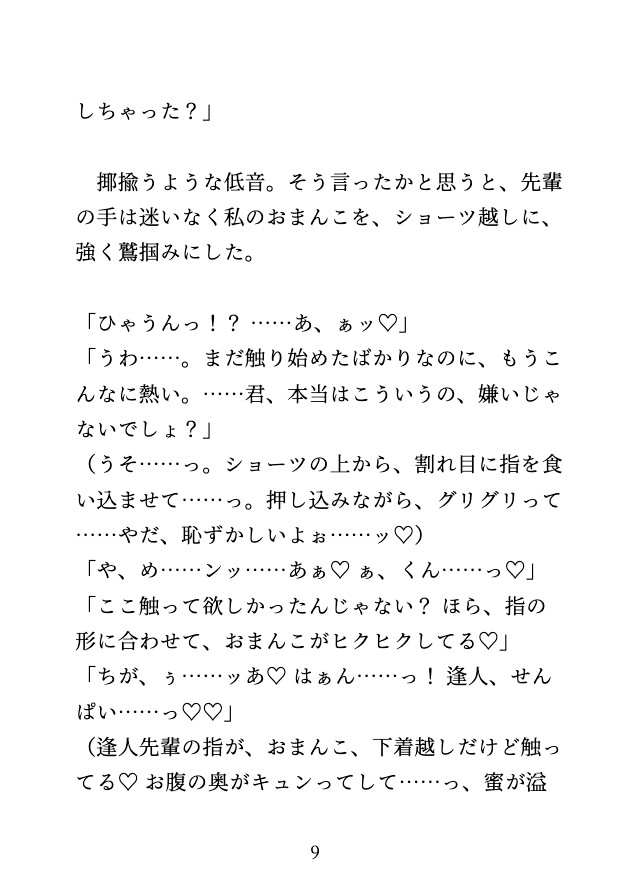 しちゃった？」
　揶揄うような低音。そう言ったかと思うと、先輩
の手は迷いなく私のおまんこを、ショーツ越しに、
強く鷲掴みにした。
「ひゃうんっ！？ ……あ、ぁッ♡」
「うわ……。まだ触り始めたばかりなのに、もうこ
んなに熱い。……君、本当はこういうの、嫌いじゃ
ないでしょ？」
（うそ……っ。ショーツの上から、割れ目に指を食
い込ませて……っ。押し込みながら、グリグリって
……やだ、恥ずかしいよぉ……ッ♡）
「や、め……ンッ……あぁ♡ ぁ、くん……っ♡」
「ここ触って欲しかったんじゃない？ ほら、指の
形に合わせて、おまんこがヒクヒクしてる♡」
「ちが、ぅ……ッあ♡ はぁん……っ！ 逢人、せん
ぱい……っ♡♡」
（逢人先輩の指が、おまんこ、下着越しだけど触っ
てる♡ お腹の奥がキュンってして……っ、蜜が溢
9